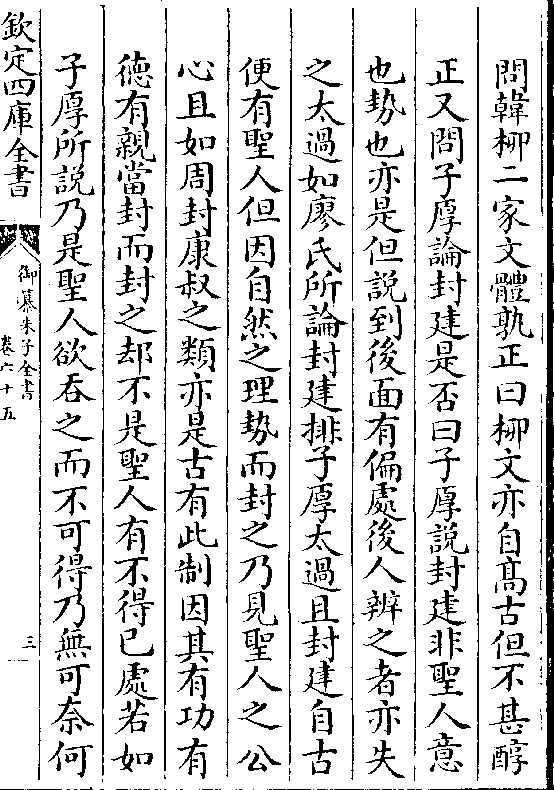 問韓柳二家文體孰正曰柳文亦自髙古但不甚醇
正又問子厚論封建是否曰子厚說封建非聖人意
也勢也亦是但說到後面有偏處後人辨之者亦失
之太過如廖氏所論封建排子厚太過且封建自古
便有聖人但因自然之理勢而封之乃見聖人之公
心且如周封康叔之類亦是古有此制因其有功有
德有親當封而封之却不是聖人有不得已處若如
子厚所說乃是聖人欲吞之而不可得乃無可奈何
欽定四庫全書
御纂朱子全書
卷六十五
三